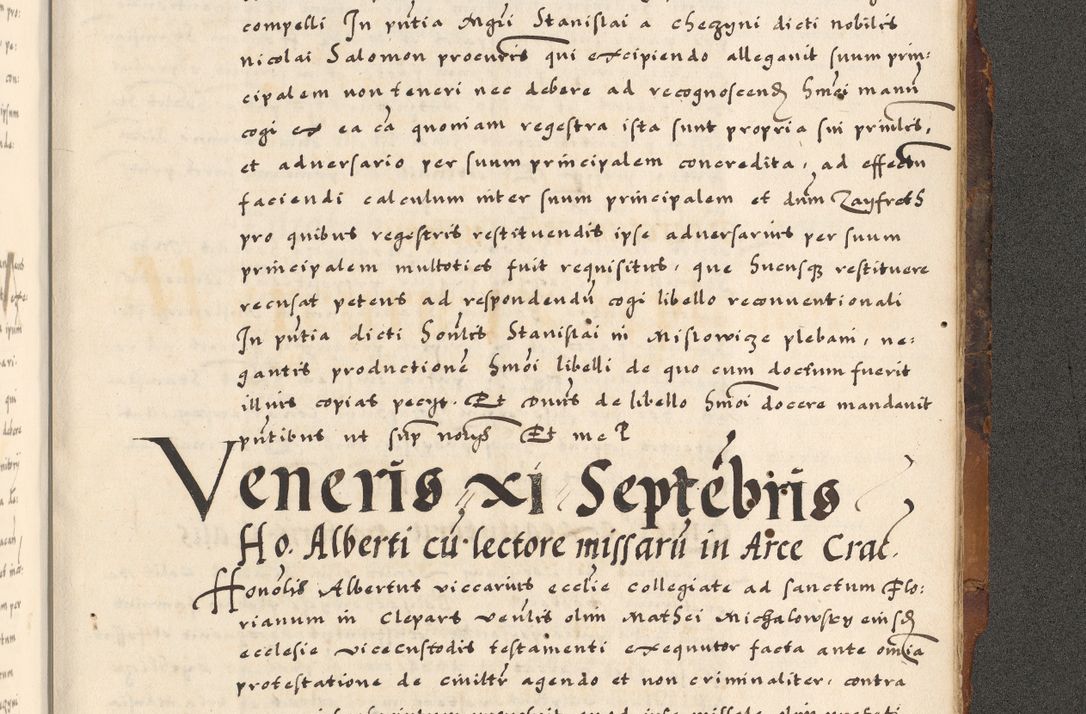 compelli In pntia Mgri Stanislai a chezyni dicti nobilis
nicolai Salomon procuris qui excipiendo allegavit suum prin:
cipalem non teneri nec debere ad recognoscend hmoi manu
cogi ex ea ca quoniam regestra ista sunt propria sui prinlis,
et adversario per suum principalem concredita, ad effectu
faciendi calculum inter suum principalem et dnm Zayfreth
pro quibus regestris restituendis ipse adversarius per suum
principalem multoties fuit requisitus, que hucusq restituere
recusat petens ad respondendu cogi libello reconventionali
In pntia dicti honlis Stanislai in Mislowicze plebani, ne:
gantis productione hmoi libelli de quo cum doctum fuerit
illius copias pecyt. Et Dnus de libello hmoi docere mandavit
pntibus ut sup noryo Et me P
Veneris xi Septebris
Ho. Alberti cu lectore missaru in Arce Crac.
Honolis Albertus viccarius ecclie collegiate ad sanctum Flo:
rianum in Clepars venlis olim Mathei Michalowsky eiusd
ecclesie vicecustodis testamenti exequutor facta ante omnia
protestatione de civiltr agendo et non criminaliter, contra